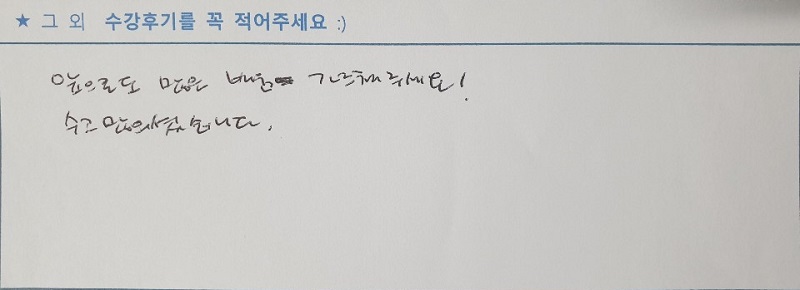 ★ 그 외 수강후기를 꼭 적어주세요 :)
앞으로도 많은 배움 가르쳐주세요!
수고 많으셨습니다.